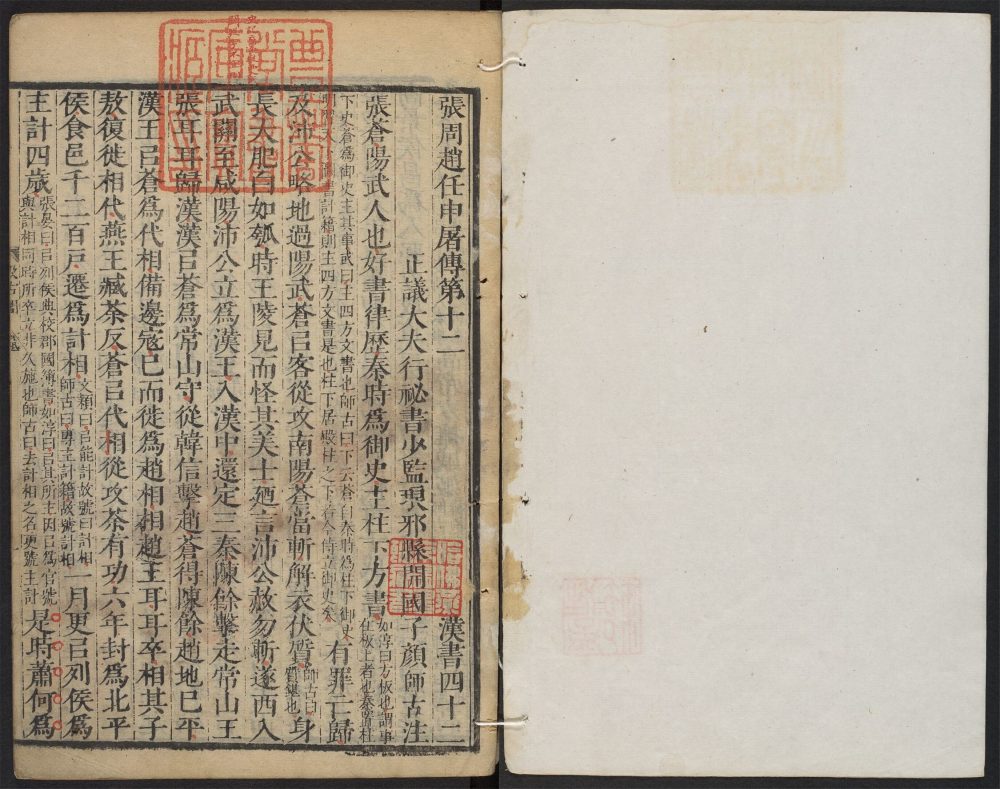 張周趙任申屠傳第十二 漢書四十二
正議大夫行祕書少監琅邪縣開國子顔師古注
張蒼陽武人也好書律歷秦時為御史主柱下方書如淳曰方板也謂事在板上者也秦置柱
下史蒼為御史主其事或曰主四方文書也師古曰下云蒼自秦時為柱下御史明習天下圖書計籍則主四方文書是也柱下居殿柱之下若今侍立御史矣有罪亡歸
及沛公略地過陽武蒼㠯客從攻南陽蒼當斬解衣伏質師古曰質鍖也身
長大肥白如瓠時王陵見而怪其美士廼言沛公赦勿斬遂西入
武關至咸陽沛公立為漢王入漢中還定三秦陳餘擊走常山王
張耳耳歸漢漢㠯蒼為常山守從韓信擊趙蒼得陳餘趙地已平
漢王㠯蒼為代相備邊寇已而徙為趙相相趙王耳耳卒相其子
敖復徙相代燕王臧荼反蒼㠯代相從攻荼有功六年封為北平
侯食邑千二百戸遷為計相文頴曰㠯能計故號曰計相師古曰專主計籍故號計相一月更㠯列侯為
主計四歲張晏曰㠯列侯典校郡國簿書如淳曰㠯其所主因㠯為官號與計相同時所卒立非久施也師古曰去計相之名更號主計是時蕭何為